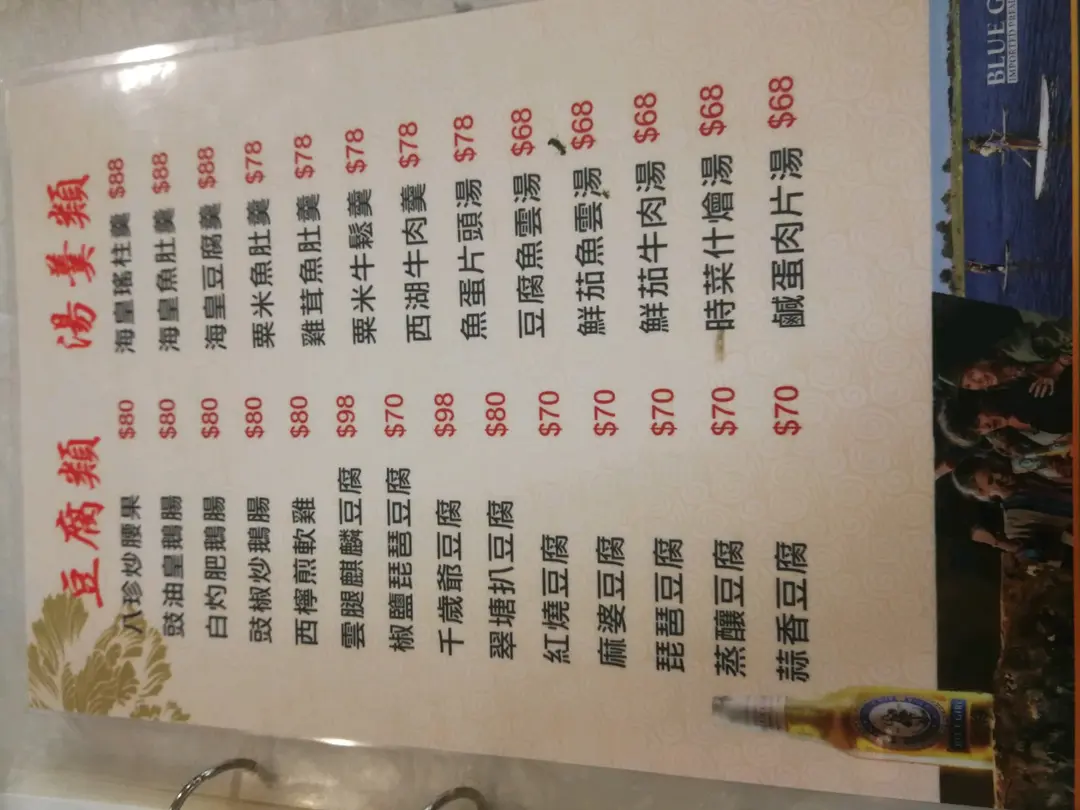 豆腐類
八珍炒腰果 $80
豉油皇鵝腸 $80
白灼肥鵝腸 $80
豉椒炒鵝腸 $80
西檸煎軟雞 $80
雲腿麒麟豆腐 $98
椒鹽琵琶豆腐 $70
千歲爺豆腐 $98
翠塘扒豆腐 $80
紅燒豆腐 $70
麻婆豆腐 $70
琵琶豆腐 $70
蒸釀豆腐 $70
蒜香豆腐 $70
湯羹類
海皇瑤柱羹 $88
海皇魚肚羹 $88
海皇豆腐羹 $88
粟米魚肚羹 $78
雞茸魚肚羹 $78
粟米牛鬆羹 $78
西湖牛肉羹 $78
魚蛋片頭湯 $78
豆腐魚雲湯 $68
鮮茄魚雲湯 $68
鮮茄牛肉湯 $68
時菜什燴湯 $68
鹹蛋肉片湯 $68
BLUE G
BLUE GIRL